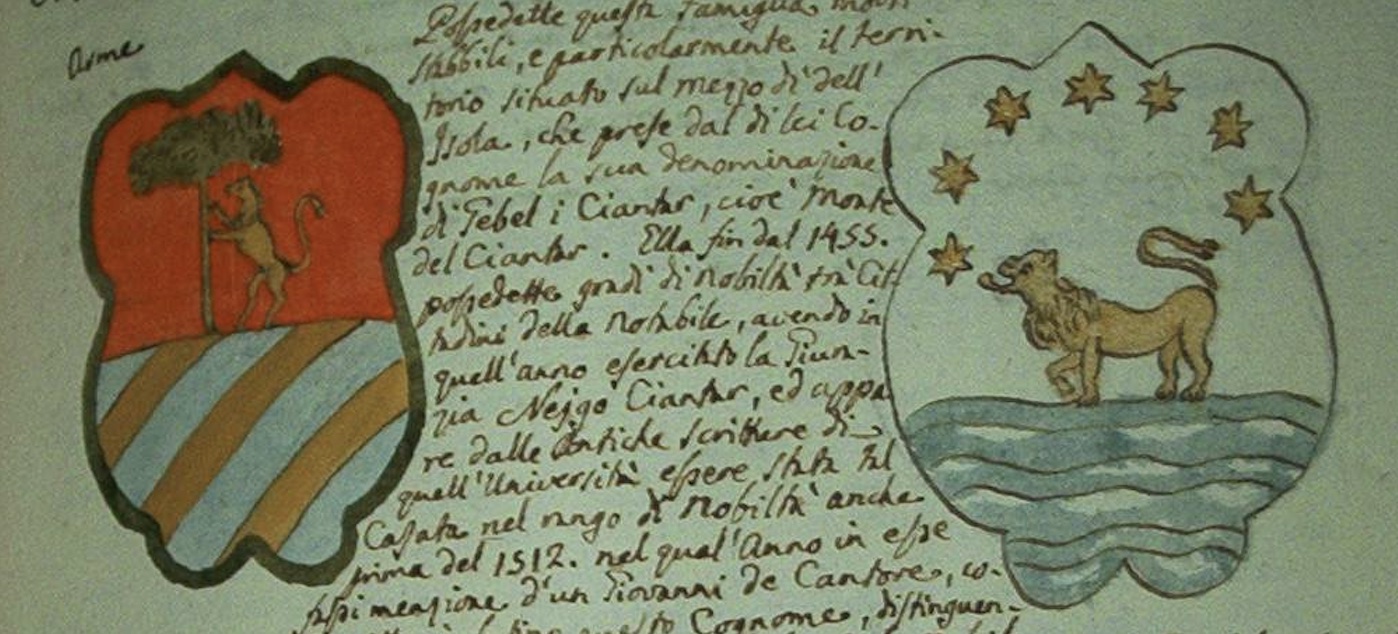 Arme
Possedette questa Famiglia molti
stabbili, e particolarmente il terri-
torio situato sul mezzo dì dell'
Isola, che prese dal di lei Co-
gnome la sua denominazione
di Gebel i Ciantar, cioè Monte
del Ciantar. Ella fin dal 1455.
possedette gradi di Nobiltà trà Cit-
tadini della Notabile, avendo in
quell'anno esercitato la Giura-
zia Nejgo Ciantar, ed appa
re dalle Antiche scritture di
quell'Università essere stata tal
Casata nel rango di Nobiltà anche
prima del 1512. nel qual'Anno in esse
fassi menzione d'un Giovanni de Cantore, co-
questo Cognome, distinguen-